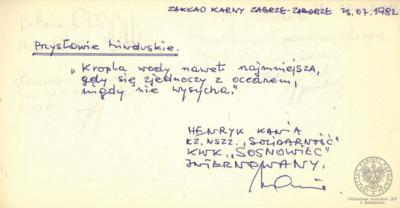 ZAKŁAD KARNY ZABRZE-ZABORZE 25.07.1982
Przysłowie hinduskie.
"Kropla wody nawet najmniejsza,
gdy się zjednoczy z oceanem,
nigdy nie wysycha."
HENRYK KANIA
KZ.NSZZ. "SOLIDARNOŚĆ"
KWK. "SOSNOWIEC"
INTERNOWANY.